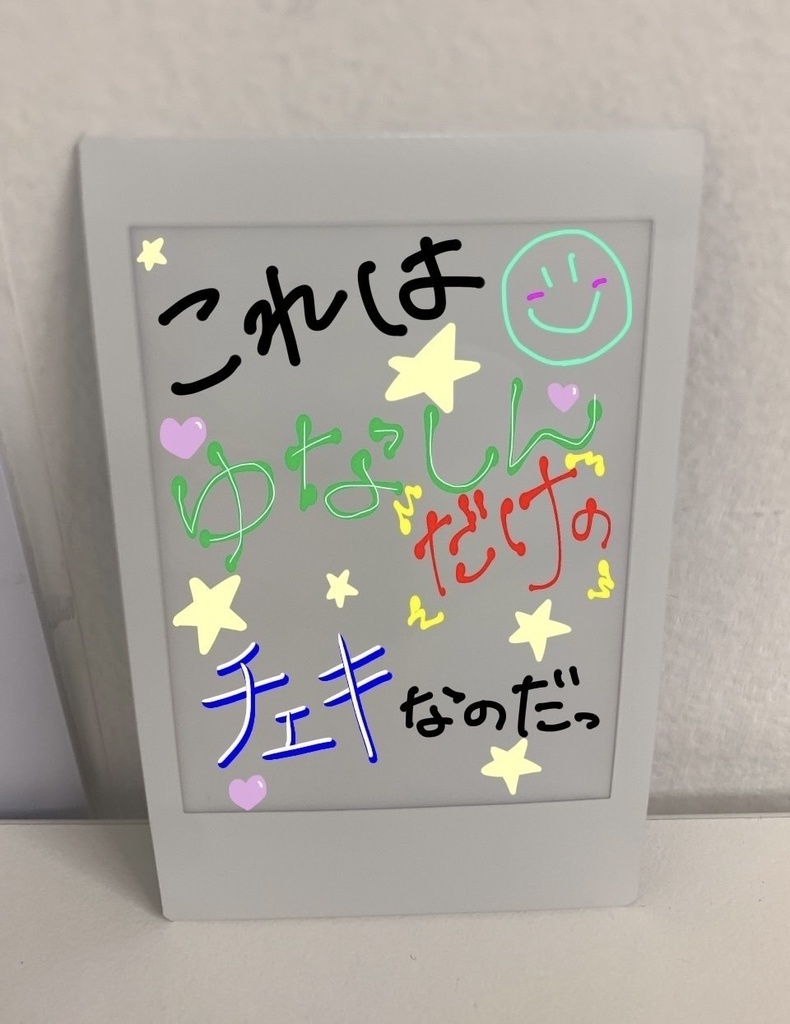 これは
ゆなしん
だけの
チェキなのだっ